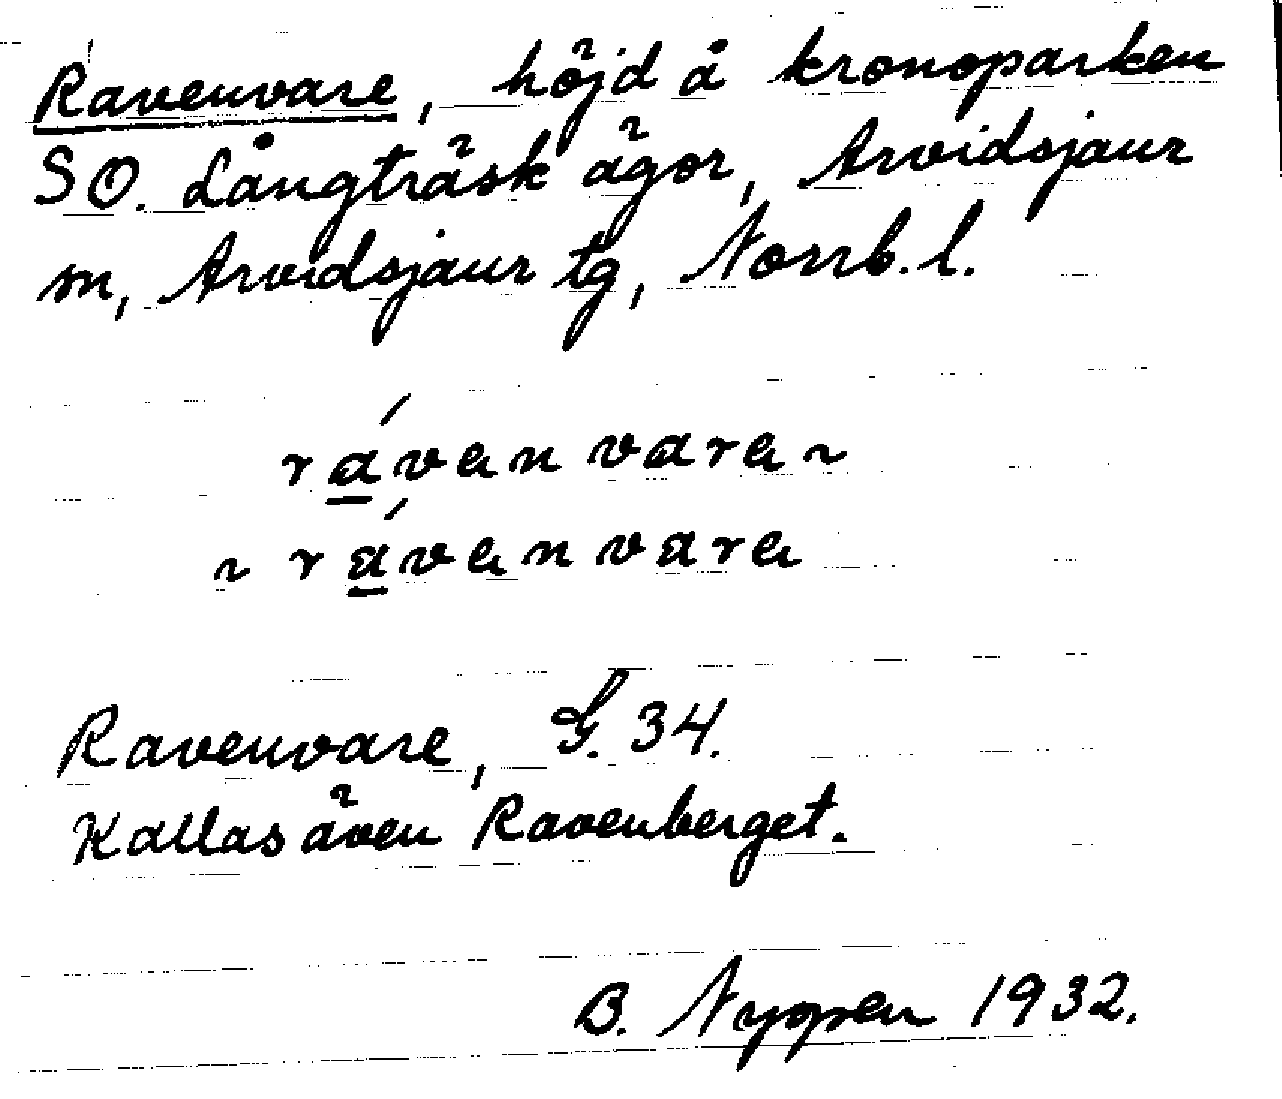 Ravenvare, höjd å kronoparken
SO. Långträsk ägor, Arvidsjaur
sn, Arvidsjaur tg, Norrb. l.
rávan vara ~
~ rávan vara
Ravenvare, G. 34.
Kallas även Ravenberget.
B. Nygren 1932.